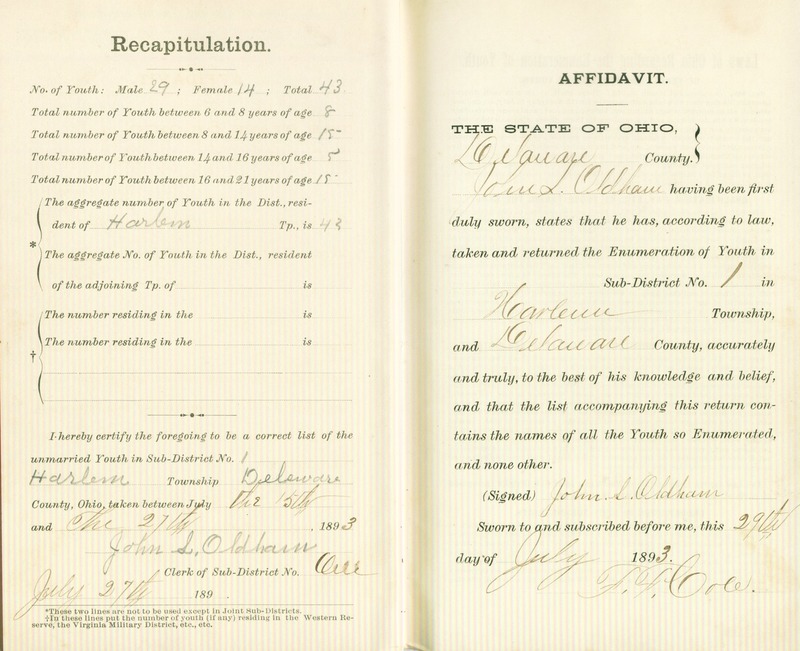 Recapitulation.
No. of Youth: Male 29 ; Female 14 ; Total 43
Total number of Youth between 6 and 8 years of age 8
Total number of Youth between 8 and 14 years of age 15
Total number of Youth between 14 and 16 years of age 5
Total number of Youth between 16 and 21 years of age 15
The aggregate number of Youth in the Dist., resi-
dent of Harlem Tp., is 43
* The aggregate No. of Youth in the Dist., resident
of the adjoining Tp. of is
The number residing in the is
† The number residing in the is
I hereby certify the foregoing to be a correct list of the
unmarried Youth in Sub-District No. 1
Harlem Township Deleware
County, Ohio, taken between July the 15th
and the 27th , 1893
John L. Oldham
Clerk of Sub-District No. One
July 27th 189 .
*These two lines are not to be used except in Joint Sub-Districts.
†In these lines put the number of youth (if any) residing in the Western Re-
serve, the Virginia Military District, etc., etc.
AFFIDAVIT.
THE STATE OF OHIO,
Delaware County.
John L. Oldham having been first
duly sworn, states that he has, according to law,
taken and returned the Enumeration of Youth in
Sub-District No. 1 in
Harlem Township,
and Delaware County, accurately
and truly, to the best of his knowledge and belief,
and that the list accompanying this return con-
tains the names of all the Youth so Enumerated,
and none other.
(Signed) John L. Oldham
Sworn to and subscribed before me, this 29th
day of July 1893.
Cole.